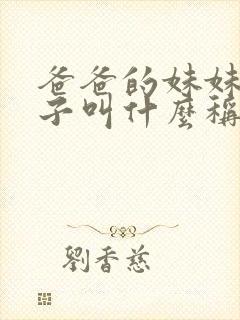 爸爸的妹妹
子叫什麼稱
劉香慈